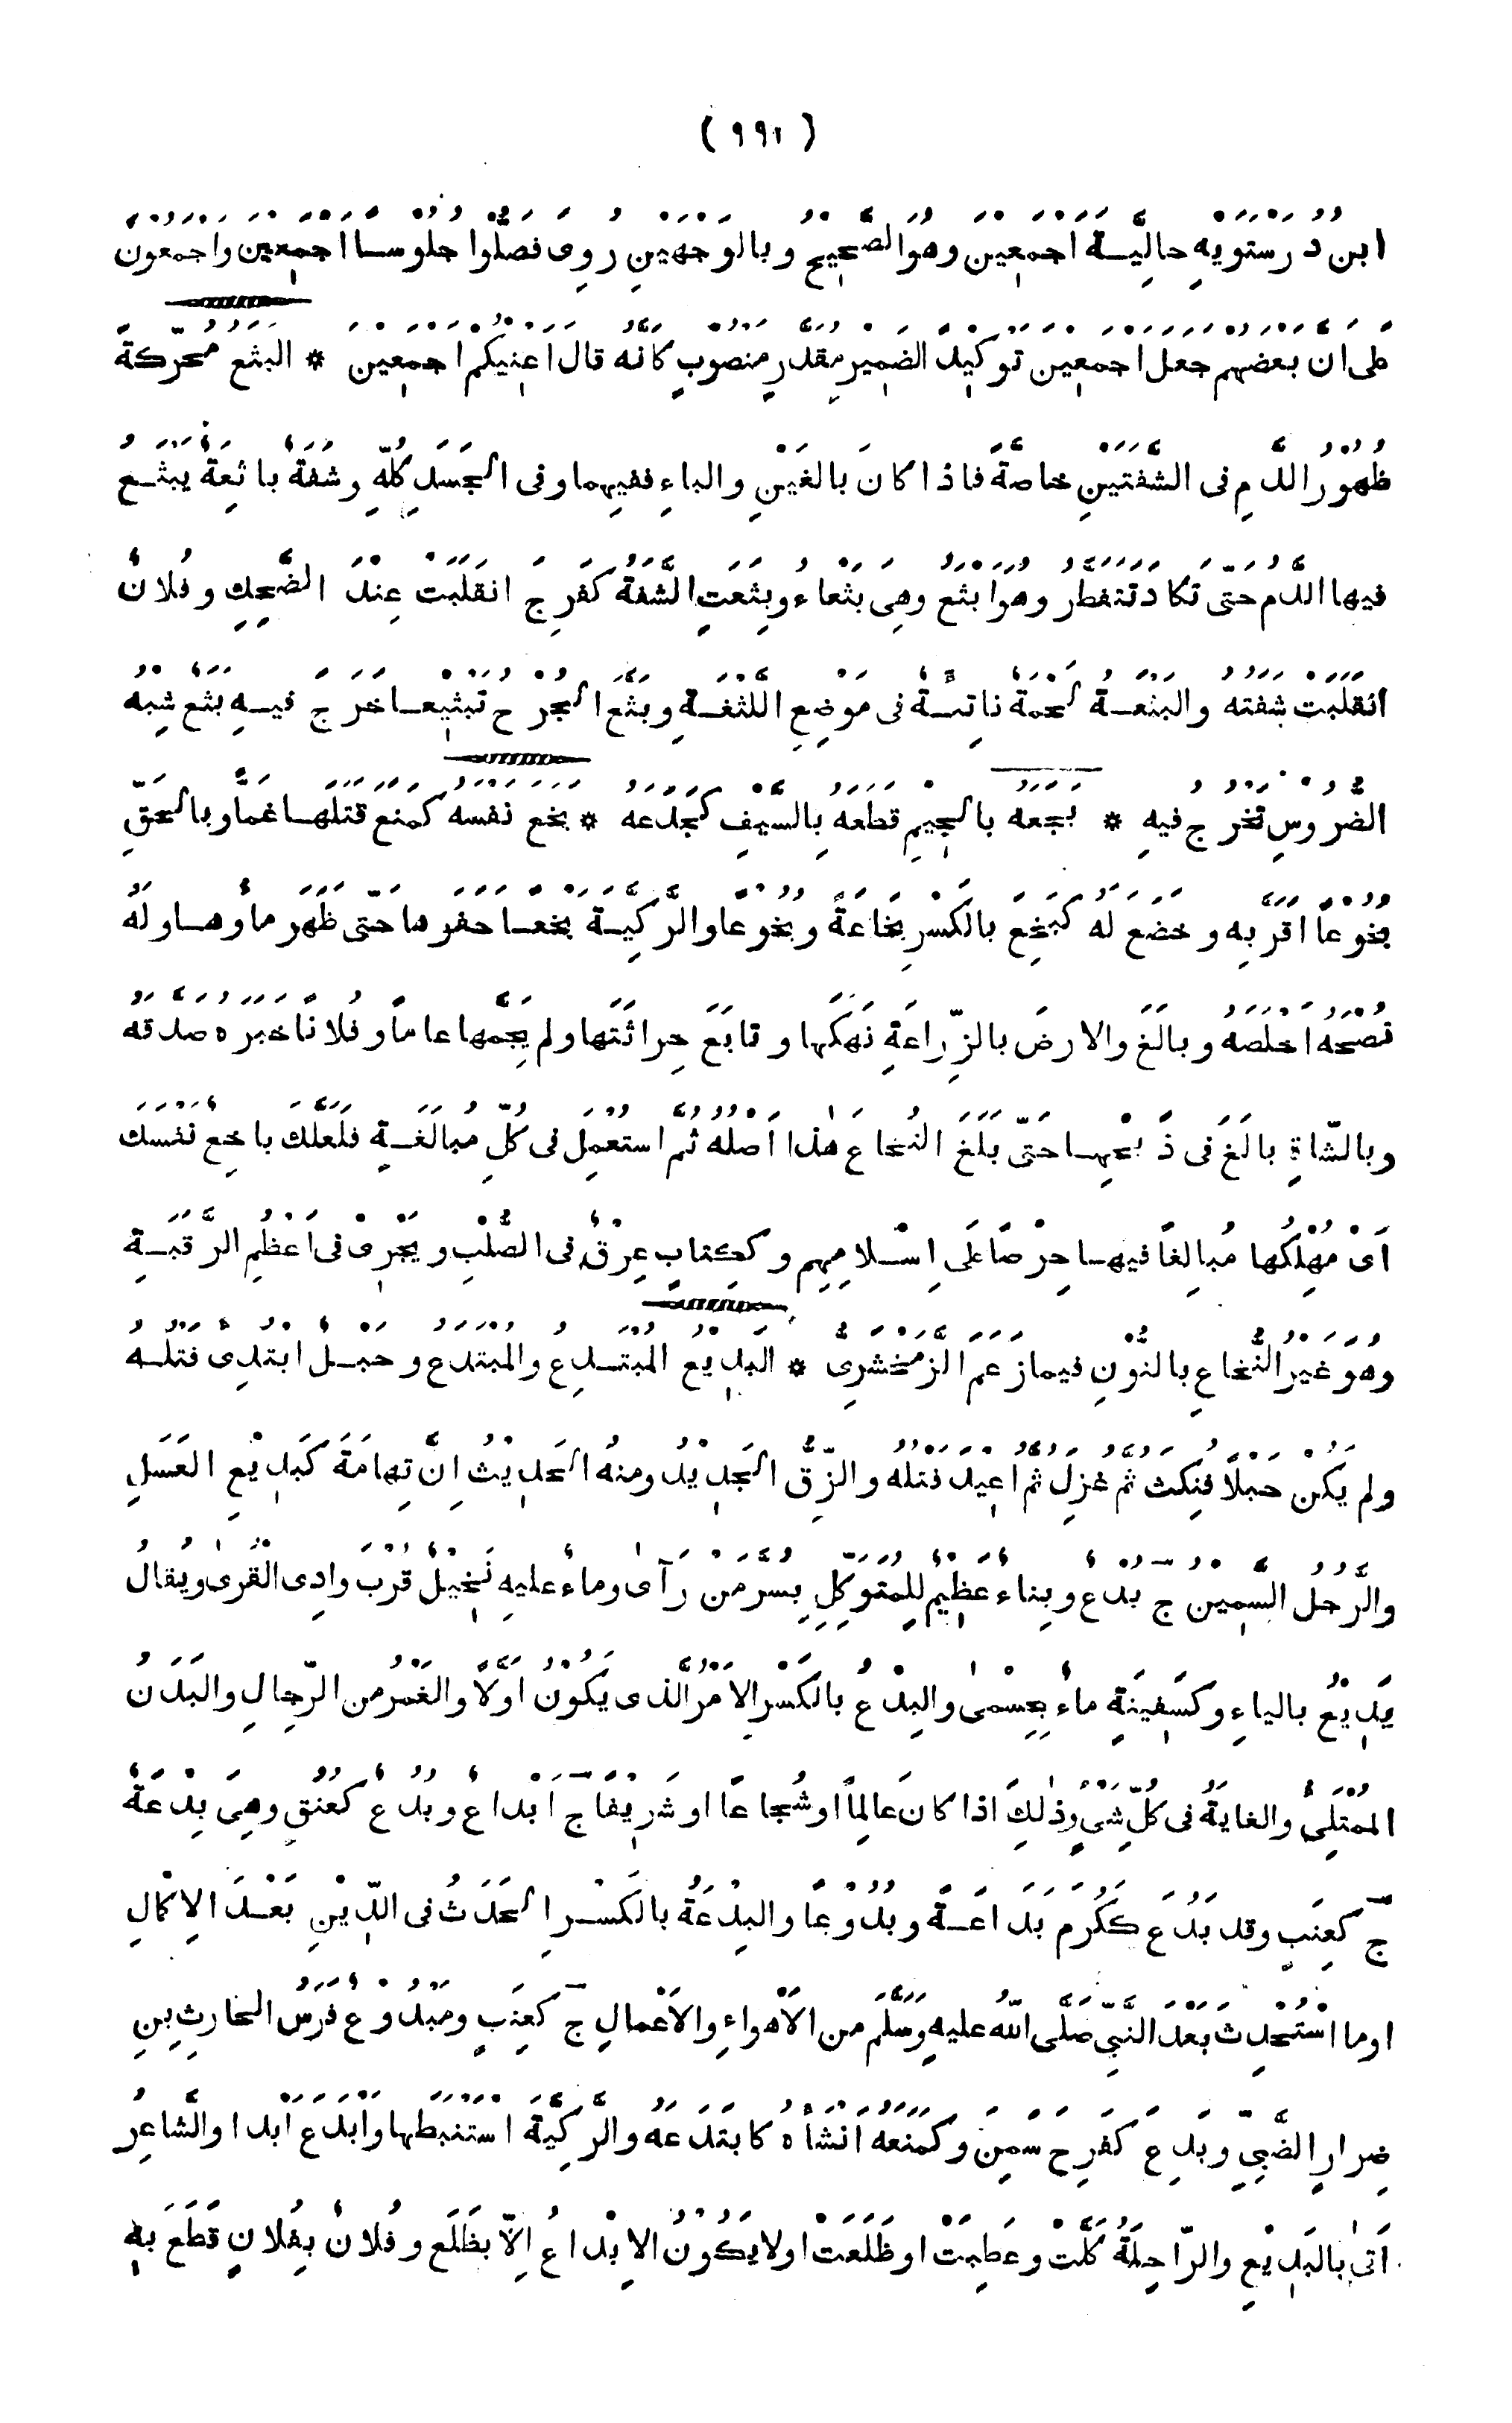 ( ٩٩١ )
ابن دُرُسْتَوَيْهِ حالِيَّــةَ اَجْمَعِيْنَ وهُوَ الصَّحِيْحُ وبالوَجْهَيْنِ رُوِىَ فصَلُّوْا جُلُوْســا اَجْمَعِيْنَ واَجْمَعُوْنَ
على اَنَّ بعضَهُمْ جَعَلَ اَجْمَعِيْنَ تَوْكِيْدًا لِضَمِيْرٍ مُقَدَّرٍ مَنْصُوْبٍ كاَنَّهُ قالَ اَعْنِيْكُمْ اَجْمَعِيْنَ * البَثَعُ مُحَرَّكَةً
ظُهُوْرُ الدَّمِ فى الشَّفَتَيْنِ خاصَّةً فاذا كانَ بالغَيْنِ والباءِ ففيهما وفى الجَسَدِ كُلِّهِ وشَفَةٌ باثِعَةٌ يَبْثَــعُ
فيها الدَّمُ حتَّى تَكادَ تَتَفَطَّرُ وهُوَ اَبْثَعُ وهِىَ بَثْعاءُ وبَثِعَتِ الشَّفَةُ كَفَرِحَ انْقَلَبَتْ عِنْدَ الضَّحِكِ وفُلانٌ
انْقَلَبَتْ شَفَتُهُ والبَثَعَــةُ لَحْمَةٌ ناتِئَــةٌ فى مَوْضِعِ اللَّثْغَــةِ وبَثَّعَ الجُرْحُ تَبْثِيْعــا خَرَجَ فيــهِ بَثَعٌ شِبْهُ
الضُّرُوسِ تَخْرُجُ فيهِ * بَجَعَهُ بالجِيْمِ قَطَعَهُ بِالسَّيْفِ كَجَدَعَهُ * بَخَعَ نَفْسَهُ كَمَنَعَ قَتَلَهــا غَمًّا وبالحَقِّ
بُخُوْعًا اَقَرَّ بِهِ وخَضَعَ لَهُ كَبَخِعَ بالكَسْرِ بَخَاعَةً وبُخُوْعًا والرَّكِيَّــةَ بَخْعًــا حَفَرَها حَتَّى ظَهَرَ ماؤُهــا ولَهُ
نُصْحَهُ اَخْلَصَهُ وبالَغَ والارضَ بالزِّراعَةِ نَهَكَها وتابَعَ حِراثَتَها ولم يُجِمَّها عاماً وفُلانًا خَبَرَهُ صَدَقَهُ
وبالشّاةِ بالَغَ فى ذَبْحِهــا حَتَّى بَلَغَ النُخاعَ هٰذا اَصْلُهُ ثُمَّ استُعْمِلَ فى كُلِّ مُبالَغَــةٍ فلَعَلَّكَ باخِعٌ نَفْسَكَ
اَىْ مُهْلِكُها مُبالِغًا فيهــا حِرْصًا عَلى اِسْــلامِهِم وكَكِتابٍ عِرْقٌ فى الصُّلْبِ ويَجْرِىْ فى اَعْظُمِ الرَّقَبَــةِ
وهُوَ غَيْرُ النُّخاعِ بالنُّوْنِ فيما زَعَمَ الزَّمَخْشَرِىُّ * البَدِيْعُ المُبْتَــدِعُ والمُبْتَدَعُ وحَبْــلٌ ابْتُدِئَ فَتْلُــهُ
ولم يَكُنْ حَبْلًا فنُكِثَ ثُمَّ غُزِلَ ثُمَّ اُعِيْدَ فَتْلُهُ والزِّقُّ الجَدِيْدُ ومنهُ الحَدِيْثُ اِنَّ تِهامَةَ كَبَدِيْعِ العَسَلِ
والرَّجُلُ السَّمِيْنُ ج بُدْعٌ وبِناءٌ عَظِيْمٌ لِلمُتَوَكِّلِ بِسُرَّ مَنْ رَآى وماءٌ عليهِ نَخِيْلٌ قُرْبَ وادِى القُرٰى ويُقالُ
يَدِيْعُ بالياءِ وكَسَفِيْنَةٍ ماءٌ بِحِسْمٰى والبِدْعُ بالكَسْرِ الاَمْرُ الَّذى يَكُوْنُ اَوَّلًا والغَمْرُ من الرِّجالِ والبَدَنُ
المُمْتَلِئُ والغايَةُ فى كُلِّ شَىْءٍ وذٰلِكَ اذا كان عَالِماً او شُجاعًا او شَرِيْفًا ج اَبْداعٌ وبُدُعٌ كَعُنُقٍ وهِىَ بِدْعَةٌ
ج كَعِنَبٍ وقد بَدُعَ كَكَرُمَ بَداعَــةً وبُدُوْعًا والبِدْعَةُ بالكَسْــرِ الحَدَثُ فى الدِّيْنِ بَعْــدَ الاِكْمالِ
اوما اسْتُحْدِثَ بَعْدَ النَّبِىِّ صَلَّى اللهُ عليهِ وَسَلَّمَ من الاَهْواءِ والاَعْمالِ ج كَعِنَبٍ ومَبْدُوْعٌ فَرَسُ الحارِثِ بنِ
ضِرارٍ الضَّبِّىِّ وبَدِعَ كَفَرِحَ سَمِنَ وكَمَنَعَهُ اَنْشَاَهُ كابْتَدَعَهُ والرَّكِيَّةَ اسْتَنْبَطَها واَبْدَعَ اَبْدا والشَّاعِرُ
اَتٰى بالبَدِيْعِ والرّاحِلَةُ كَلَّتْ وعَطِبَتْ او ظَلَعَتْ او لا يَكُوْنُ الاِبْداعُ اِلّا بظَلَعٍ وفُلانٌ بِفُلانٍ قَطَعَ بهِ